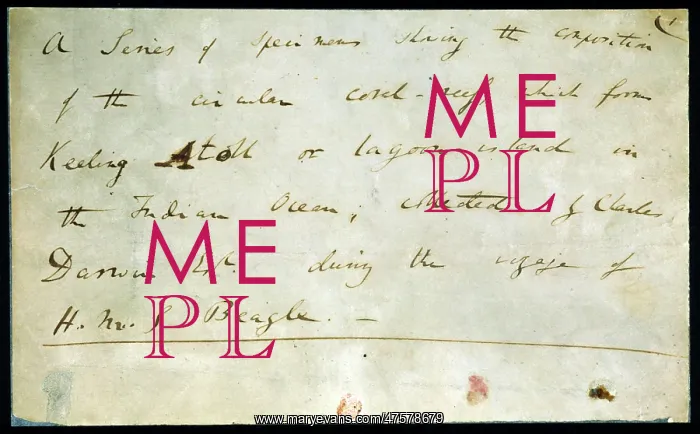 A Series of specimens shewing the composition
of the circular coral-reefs which form
Keeling Atoll or lagoon island in
the Indian Ocean; collected by Charles
Darwin Esq. during the voyage of
H. M. S Beagle. —
ME
PL
ME
PL
www.maryevans.com/47578679